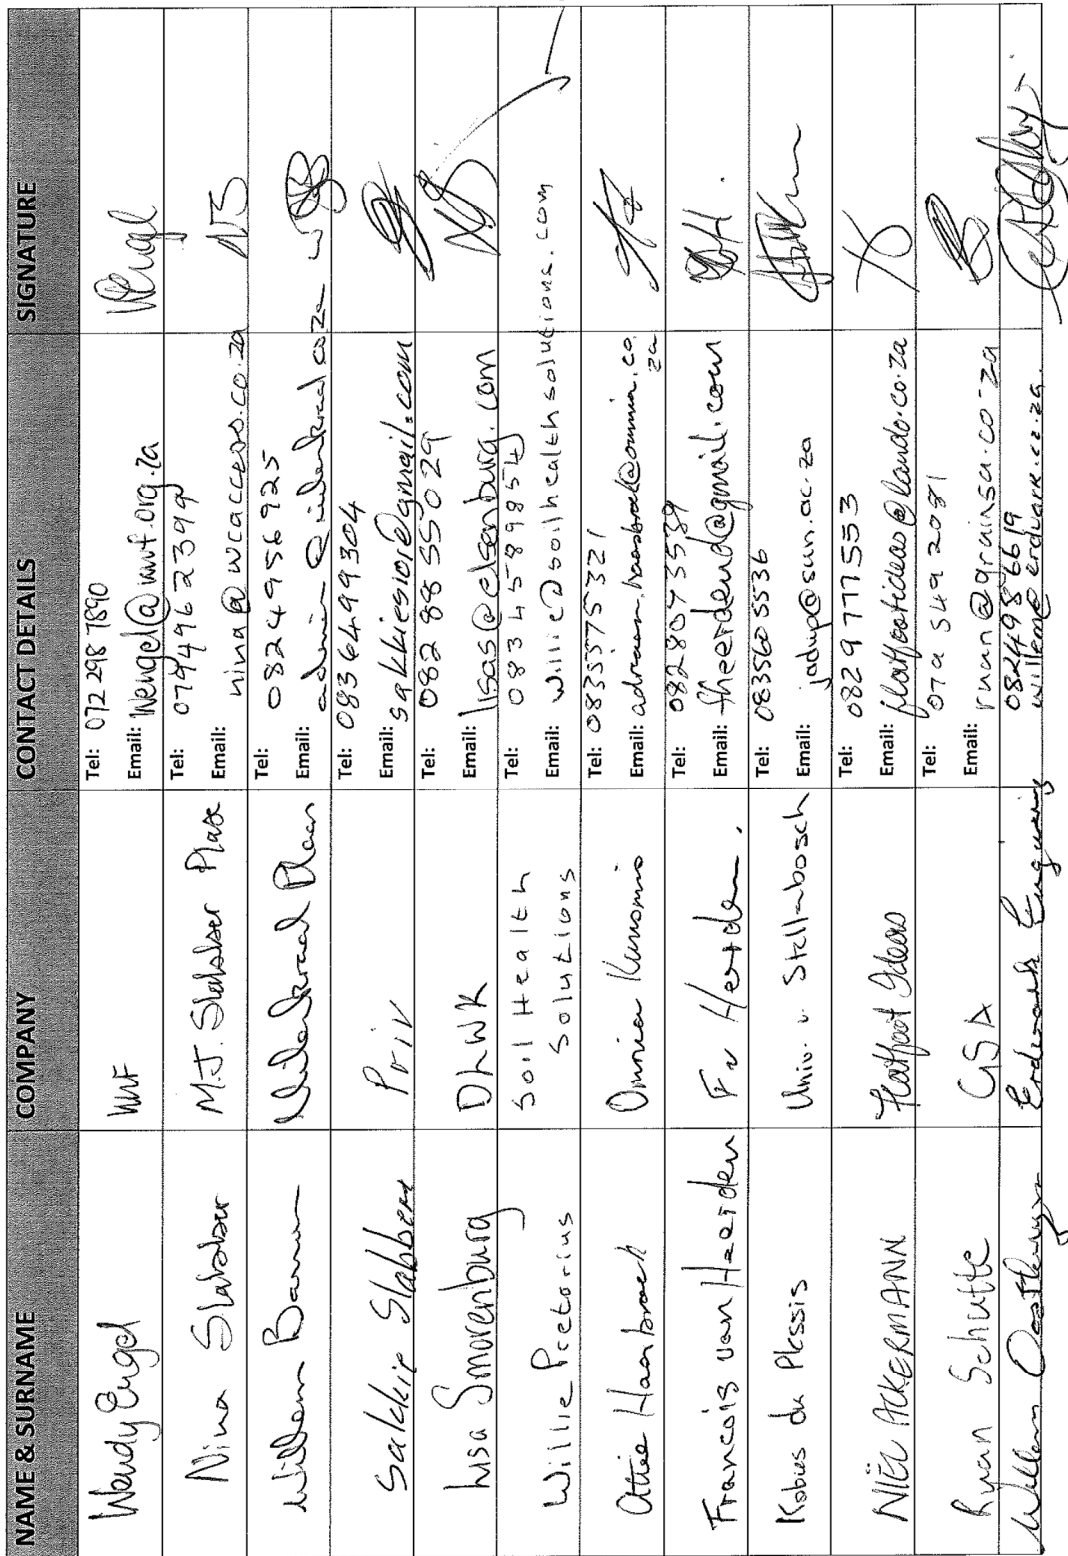 NAME & SURNAME COMPANY CONTACT DETAILS SIGNATURE
Wendy Engel WWF Tel: 072 298 7890
Email: Wengel@wwf.org.za
Nina Slabber M.J. Slabber Plase Tel: 0794962399
Email: nina@wcaccess.co.za NS
Willem Tel: 0824956925
Email:
Sakkie Slabbert Priv Tel: 0836499304
Email: sakkiesior@gmail.com
Lisa Smorenburg DLWK Tel: 0828855029
Email: lisas@elsenburg.com
Willie Pretorius Soil Health Solutions Tel: 0834589854
Email: willie@soilhealthsolutions.com
Attie Haasbroek Omnia Kunsmis Tel: 0833575321
Email: adriaan.haasbroek@omnia.co.za
Francois van Heerden Fv Heerden. Tel: 0828073539
Email: fheerdend@gmail.com
Kobus du Plessis Univ. v. Stellenbosch Tel: 0835605536
Email: jadup@sun.ac.za
NIËL ACKERMANN Flatfoot Ideas Tel: 0829777553
Email: flatfootideas@lando.co.za
Ryan Schutte GSA Tel: 079 549 2081
Email: ruan@grainsa.co.za
Willem Erdvark 0824986619
willem@erdvark.co.za.